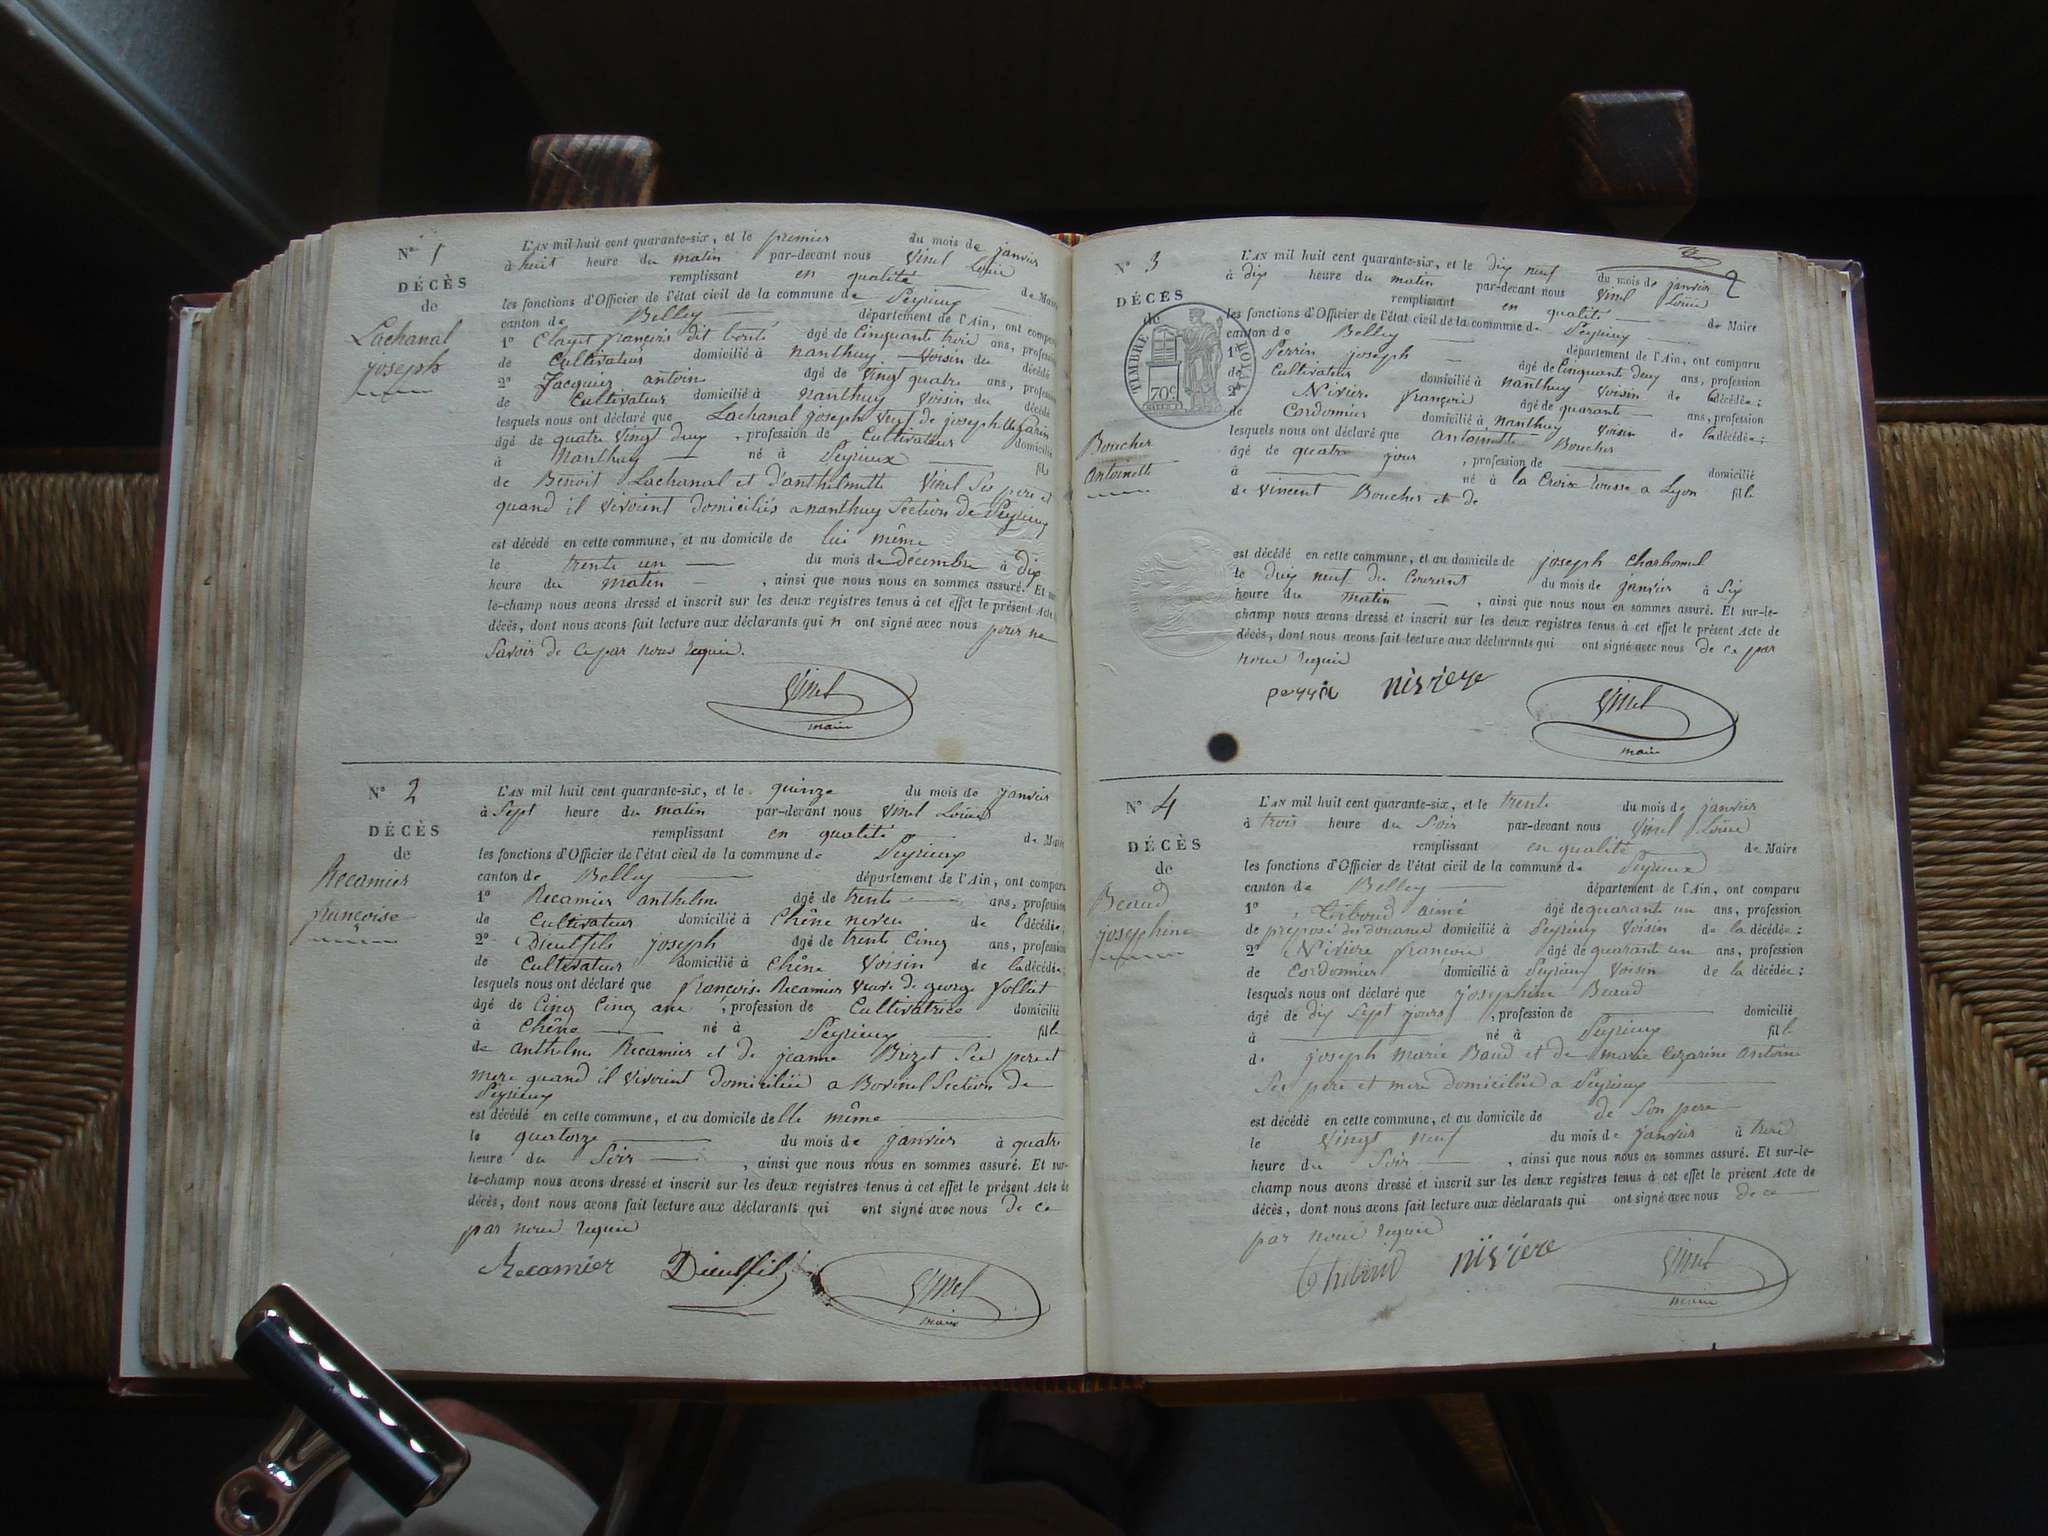 N° 1
DÉCÈS
de
Lachanal
joseph
L'AN mil huit cent quarante-six, et le premier du mois de janvier
à huit heure du matin par-devant nous Vinel Louis
remplissant en qualité de Maire
les fonctions d'Officier de l'état civil de la commune de Peyrieux
canton de Belley département de l'Ain, ont comparu
1° Clayet françois dit agé de Cinquante trois ans, profession
de Cultivateur domicilié à nanthuy voisin du décédé
2° Jacquier antoine agé de vingt quatre ans, profession
de Cultivateur domicilié à Nanthuy voisin du décédé
lesquels nous ont déclaré que Lachanal joseph veuf de josephte
âgé de quatre vingt deux , profession de Cultivateur domicilié
à Nanthuy né à Peyrieux fils
de Benoit Lachanal et d'anthelmette Vinel Ses pere et
quand il vivoient domiciliés a nanthuy Section de Peyrieux
est décédé en cette commune, et au domicile de lui même
le trente un du mois de décembre à dix
heure du matin , ainsi que nous nous en sommes assuré. Et sur-
le-champ nous avons dressé et inscrit sur les deux registres tenus à cet effet le présent Acte
décès, dont nous avons fait lecture aux déclarants qui n ont signé avec nous pour ne
Savoir de ce par nous requis.
Vinel
maire
N° 2
DÉCÈS
de
Recamier
françoise
L'AN mil huit cent quarante-six, et le quinze du mois de janvier
à Sept heure du matin par-devant nous Vinel Louis
remplissant en qualité de Maire
les fonctions d'Officier de l'état civil de la commune de Peyrieux
canton de Belley département de l'Ain, ont comparu
1° Recamier anthelme agé de trente ans, profession
de Cultivateur domicilié à Chêne neveu de la décédée,
2° Dieulfils joseph âgé de trente Cinq ans, profession
de Cultivateur domicilié à Chêne Voisin de la décédée,
lesquels nous ont déclaré que françoise Recamier veuve de george Jolliet
âgé de Cinq Cinq ans , profession de Cultivatrice domicilié
à Chêne né à Peyrieux fille
de anthelme Recamier et de jeanne Brizet Ses pere et
mere quand il vivoient domiciliés a Section de
Peyrieux
est décédé en cette commune, et au domicile de lle même
le quatorze du mois de janvier à quatre
heure du Soir , ainsi que nous nous en sommes assuré. Et sur-
le-champ nous avons dressé et inscrit sur les deux registres tenus à cet effet le présent Acte de
décès, dont nous avons fait lecture aux déclarants qui ont signé avec nous de ce
par nous requis
Recamier Dieulfils Vinel
maire
2
N° 3
DÉCÈS
de
TIMBRE ROYAL
70c
Boucher
Antoinette
L'AN mil huit cent quarante-six, et le dix neuf du mois de janvier
à dix heure du matin par-devant nous Vinel Louis
remplissant en qualité de Maire
les fonctions d'Officier de l'état civil de la commune de Peyrieux
canton de Belley département de l'Ain, ont comparu
1° Perrin joseph âgé de Cinquante deux ans, profession
de Cultivateur domicilié à nanthuy Voisin de la décédée;
2° Nivière françois âgé de quarante ans, profession
de Cordonnier domicilié à Nanthuy Voisin de la décédée;
lesquels nous ont déclaré que antoinette Boucher
âgé de quatre jours , profession de domicilié
à né à la Croix rousse a Lyon fille
de Vincent Boucher et de
est décédé en cette commune, et au domicile de joseph Charbonnel
le dix neuf du Courant du mois de janvier à Six
heure du matin , ainsi que nous nous en sommes assuré. Et sur-le-
champ nous avons dressé et inscrit sur les deux registres tenus à cet effet le présent Acte de
décès, dont nous avons fait lecture aux déclarants qui ont signé avec nous de ce par
nous requis
nivière Vinel
maire
N° 4
DÉCÈS
de
Beaud
josephine
L'AN mil huit cent quarante-six, et le trente du mois de janvier
à trois heure du Soir par-devant nous Vinel Louis
remplissant en qualité de Maire
les fonctions d'Officier de l'état civil de la commune de Peyrieux
canton de Belley département de l'Ain, ont comparu
1° Thiboud aimé âgé de quarante un ans, profession
de préposé du douane domicilié à Peyrieux Voisin de la décédée;
2° Nivière françois âgé de quarant un ans, profession
de Cordonnier domicilié à Peyrieux Voisin de la décédée;
lesquels nous ont déclaré que josephine Beaud
âgé de dix Sept jours , profession de domicilié
à né à Peyrieux fille
de joseph marie Baud et de marie Cezarine Antoine
Ses pere et mere domiciliés a Peyrieux
est décédé en cette commune, et au domicile de de Son pere
le vingt neuf du mois de janvier à
heure du Soir , ainsi que nous nous en sommes assuré. Et sur-le-
champ nous avons dressé et inscrit sur les deux registres tenus à cet effet le présent Acte de
décès, dont nous avons fait lecture aux déclarants qui ont signé avec nous de ce
par nous requis
Thiboud nivière Vinel
maire